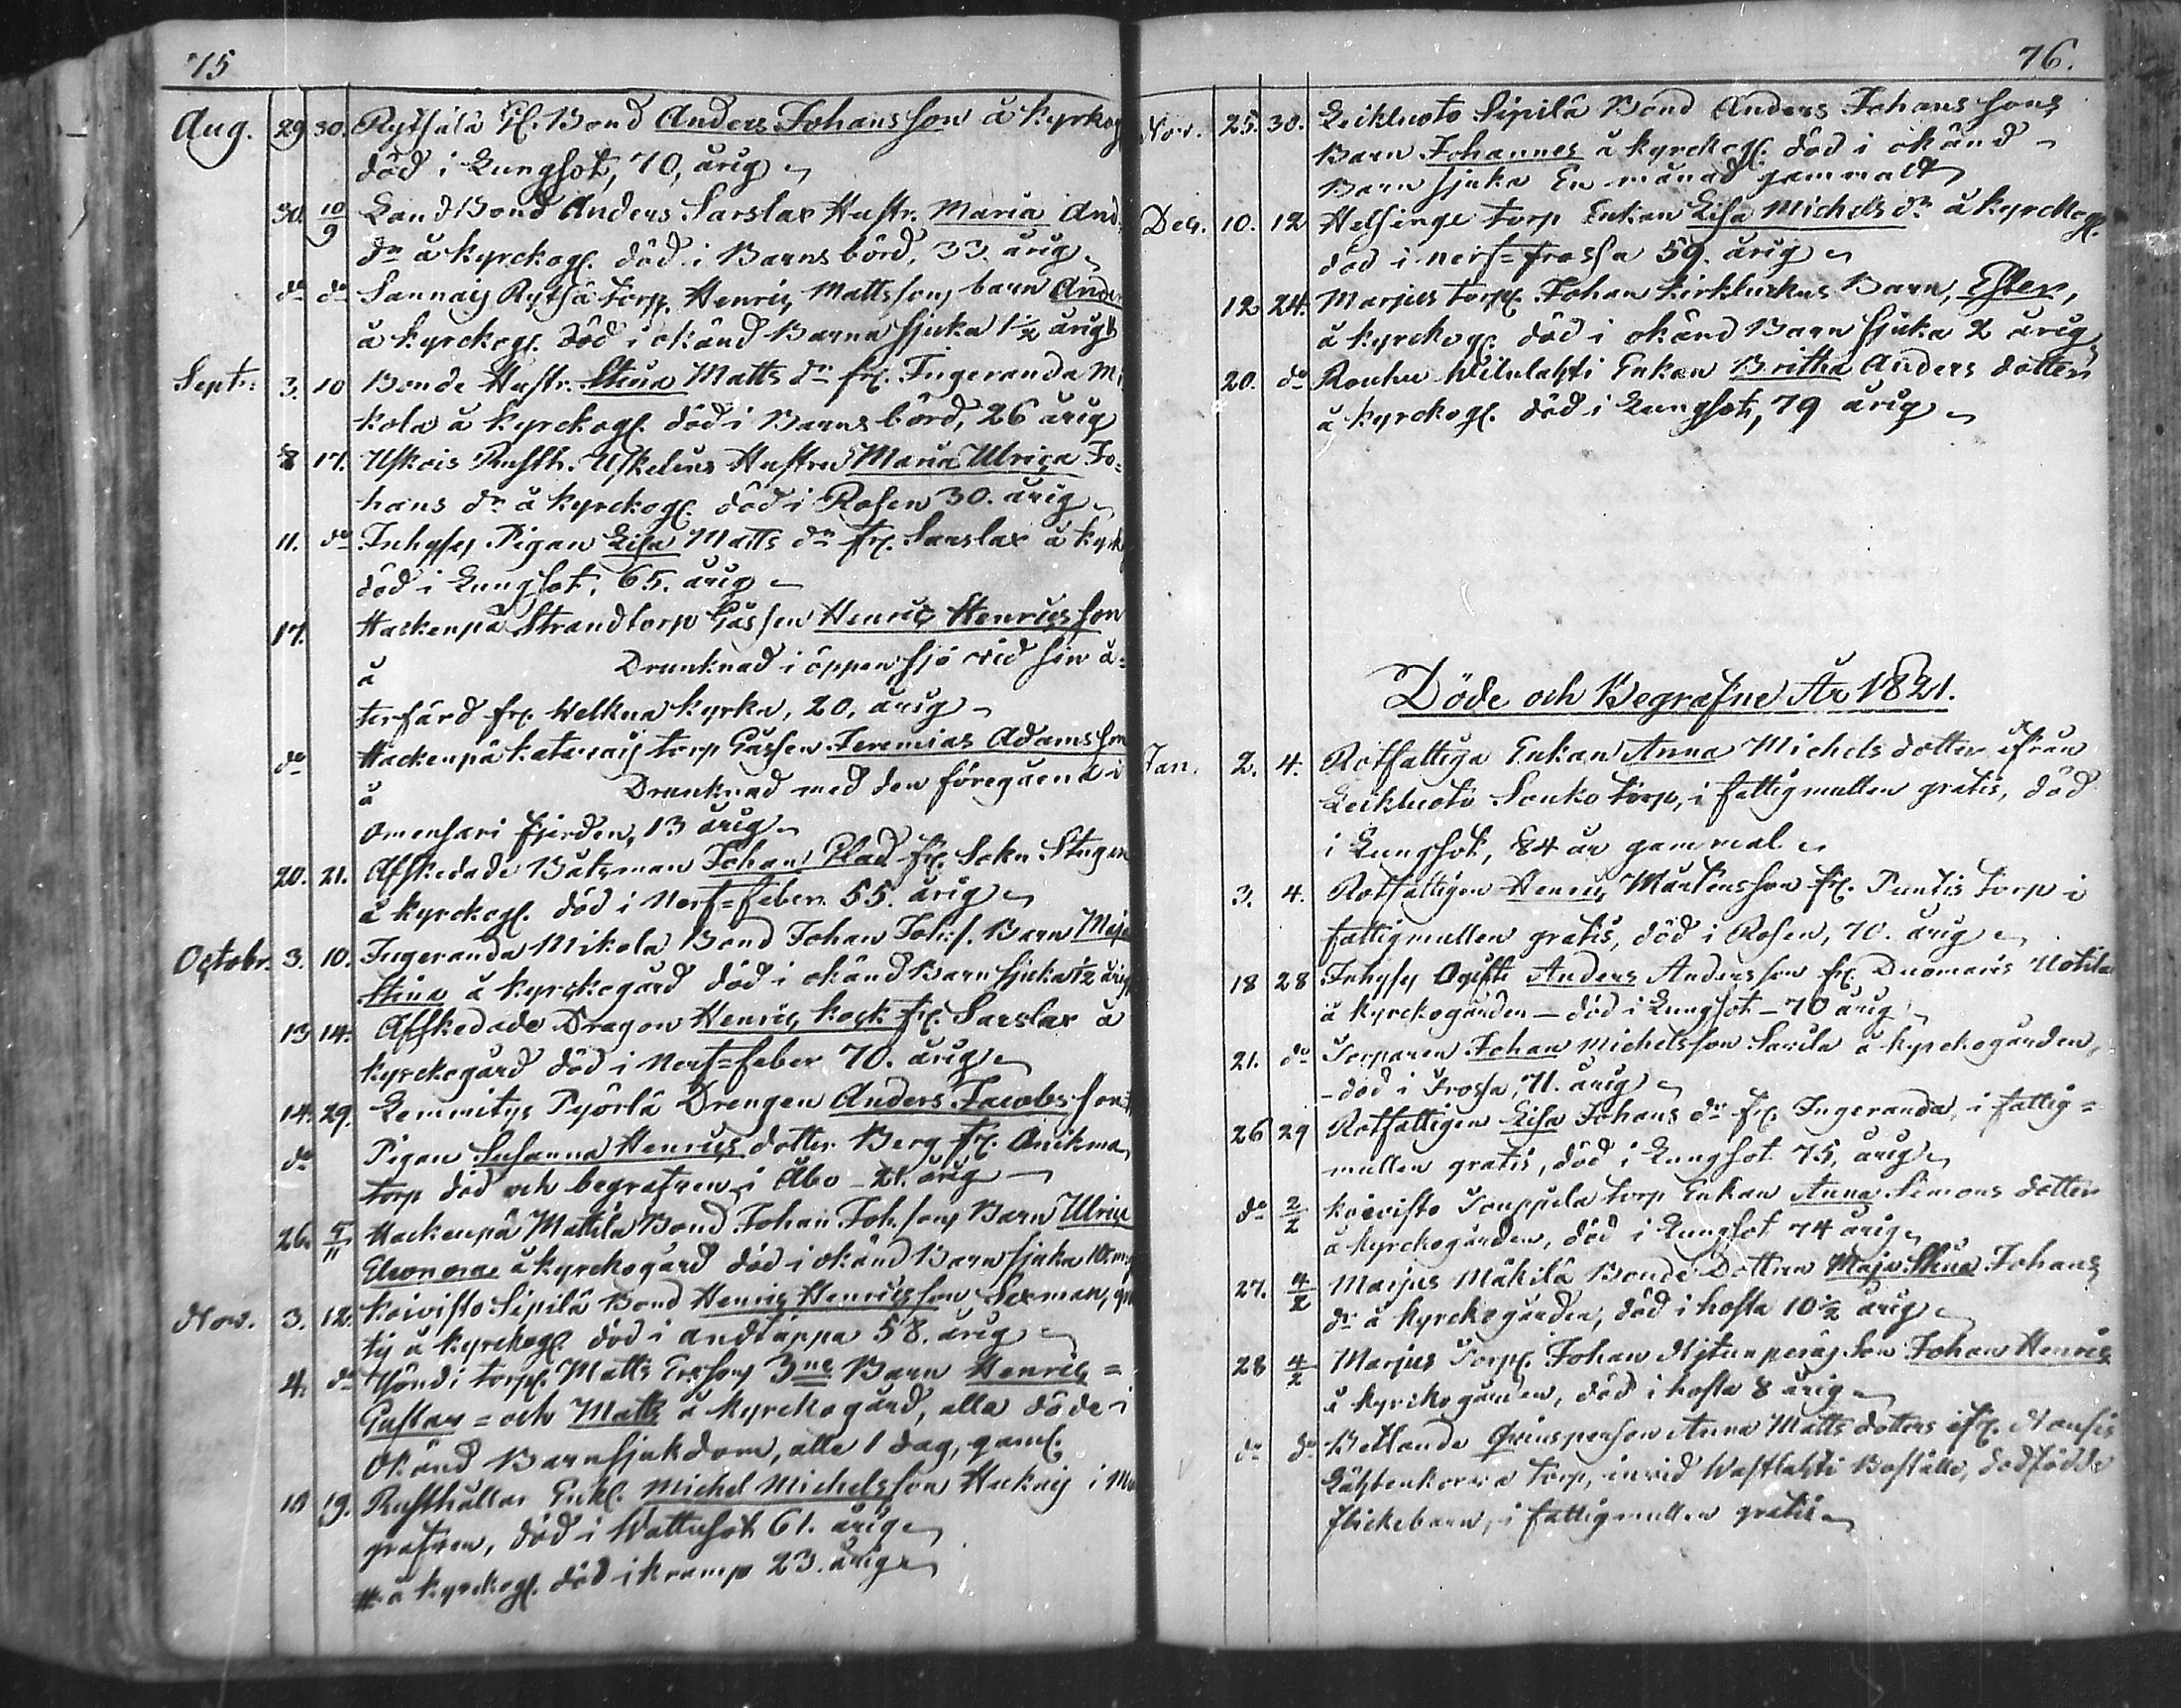 75
Aug. 29 30. Rytsälä Bond Anders Johansson å kyrkog
död i Lungsot, 70, årig
30. 10/9 Land Bond Anders Sarslax Hustr. Maria And
dr å kyrckog. död i Barnsbörd, 33. årig
do do Sannais Rytsä torp. Henrics Mattssons barn Ander
å kyrckog. död i okänd Barnasjuka 1 1/2 årigt
Septr. 3. 10 Bonde Hustr. Stina Matts dr fr. Ingeranda Mi
kola å kyrckog. död i Barnsbörd, 26 årig
8 17. Uskois Rusth. Uskelius Hustru Maria Ulrica Jo=
hans dr å kyrckog. död i Rosen 30. årig
11. do Inhyses Pigan Lisa Matts dr fr. Sarslax å kyrk
död i Lungsot, 65. årig
17. Hackenpä Strandtorp Gåssen Henric Henricsson
å Drunknad i öppen sjö vid sin å=
terfärd fr. Welkua kyrka, 20, årig
do Hackenpä torp Gåssen Jeremias Adamsson
å Drunknad med den föregåend i
Omensari fjerden, 13 årig
20. 21. Afskedade Båtsman Johan Glad fr. Sokn Stugan
å kyrckog. död i Nerf=feber 55. årig
Octobr. 3. 10. Ingeranda Mikola Bond Johan Johs. Barn Maja
Stina å kyrckogård död i okänd Barnsjuka 1/2 årig
13 14. Afskedade Dragon Henric Kock fr. Sarslax å
kyrckogård död i Nerf=feber 70. årig
14. 29. Lemmitys Pyörlä Drengen Anders Jacobsson #
do Pigan Susanna Henrics dotter Berg fr.
torp död och begrafven i Åbo - 21. årig
26. 5/11 Hackenpä Mattila Bond Johan Johssons Barn Ulrica
Eleonora å kyrckogård död i okänd Barnsjuka
Nov. 3. 12. Koivisto Sipilä Bond Henric Henricsson Sexman,
å kyrckog. död i andtäppa 58. årig
4. do torp. Matts Erssons 3ne Barn Henric =
Gustav = och Matts å kyrckogård, alla döde i
Okänd Barnsjukdom, alle 1 dag, gaml.
19. Rusthållar Enkl. Michel Michelsson i
grafven, död i Wattusot 61. årig
# å kyrckog. död i kramp 23. årig
76.
Nov. 25. 30. Leikluoto Sipilä Bond Anders Johanssons
Barn Johannes å kyrckog. död i okänd
Barnsjuka En månad gammalt
Dec. 10. 12 Helsinge torp Enkan Lisa Michels dr å kyrckog.
död i nerf=frossa 59. årig
12 24. Marjus torp. Johan Kirkluckus Barn, Ester,
å kyrckog. död i okänd Barnsjuka 2 årig
20. do Rouhu Wilulahti Enkan Britha Anders dotter
å kyrckog. död i Lungsot, 79 årig
Döde och Begrafne År 1821.
Jan. 2. 4. Rotfattiga Enkan Anna Michels dotter ifrån
Leikluoto Souko torp, i fattigmullen gratis, död
i Lungsot, 84 år gammal
3. 4. Rotfattigen Henric Mårtensson fr. Puntis torp i
fattigmullen gratis, död i Rosen, 70. årig
18 28 Inhyses Ogifte Anders Andersson fr. Duomaris Uotila
å kyrckogården - död i Lungsot - 70 årig
21. do Torparen Johan Michelsson Savila å kyrckogården,
- död i Frossa, 71. årig
26 29 Rotfattigen Lisa Johans dr fr. Ingeranda, i fattig=
mullen gratis, död i Lungsot 75, årig
do 2/2 Koivisto Touppila torp Enkan Anna Simons dotter
å kyrckogården, död i Lungsot 74 årig
27. 4/2 Marjus Mäkilä Bonde Dottren Maja Stina Johans
dr å kyrckogården, död i hosta 10 1/2 årig
28 4/2 Marjus Torp. Johan Son Johan Henric
å kyrckogården, död i hosta 8 årig
do do Betlande Qvinsperson Anna Matts dotters ifr. Nousis
torp, invid Wastlahti Boställe, dödfödde
flickebarn, i fattigmullen gratis